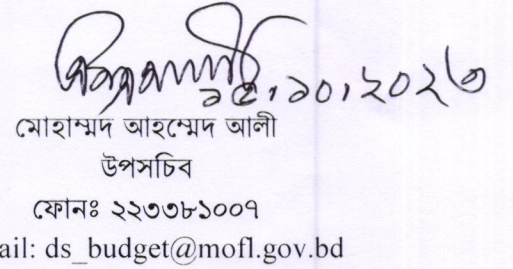 ১৫.১০.২০২৩
মোহাম্মদ আহম্মেদ আলী
উপসচিব
ফোনঃ ২২৩৩৮১০০৭
ail: ds_budget@mofl.gov.bd